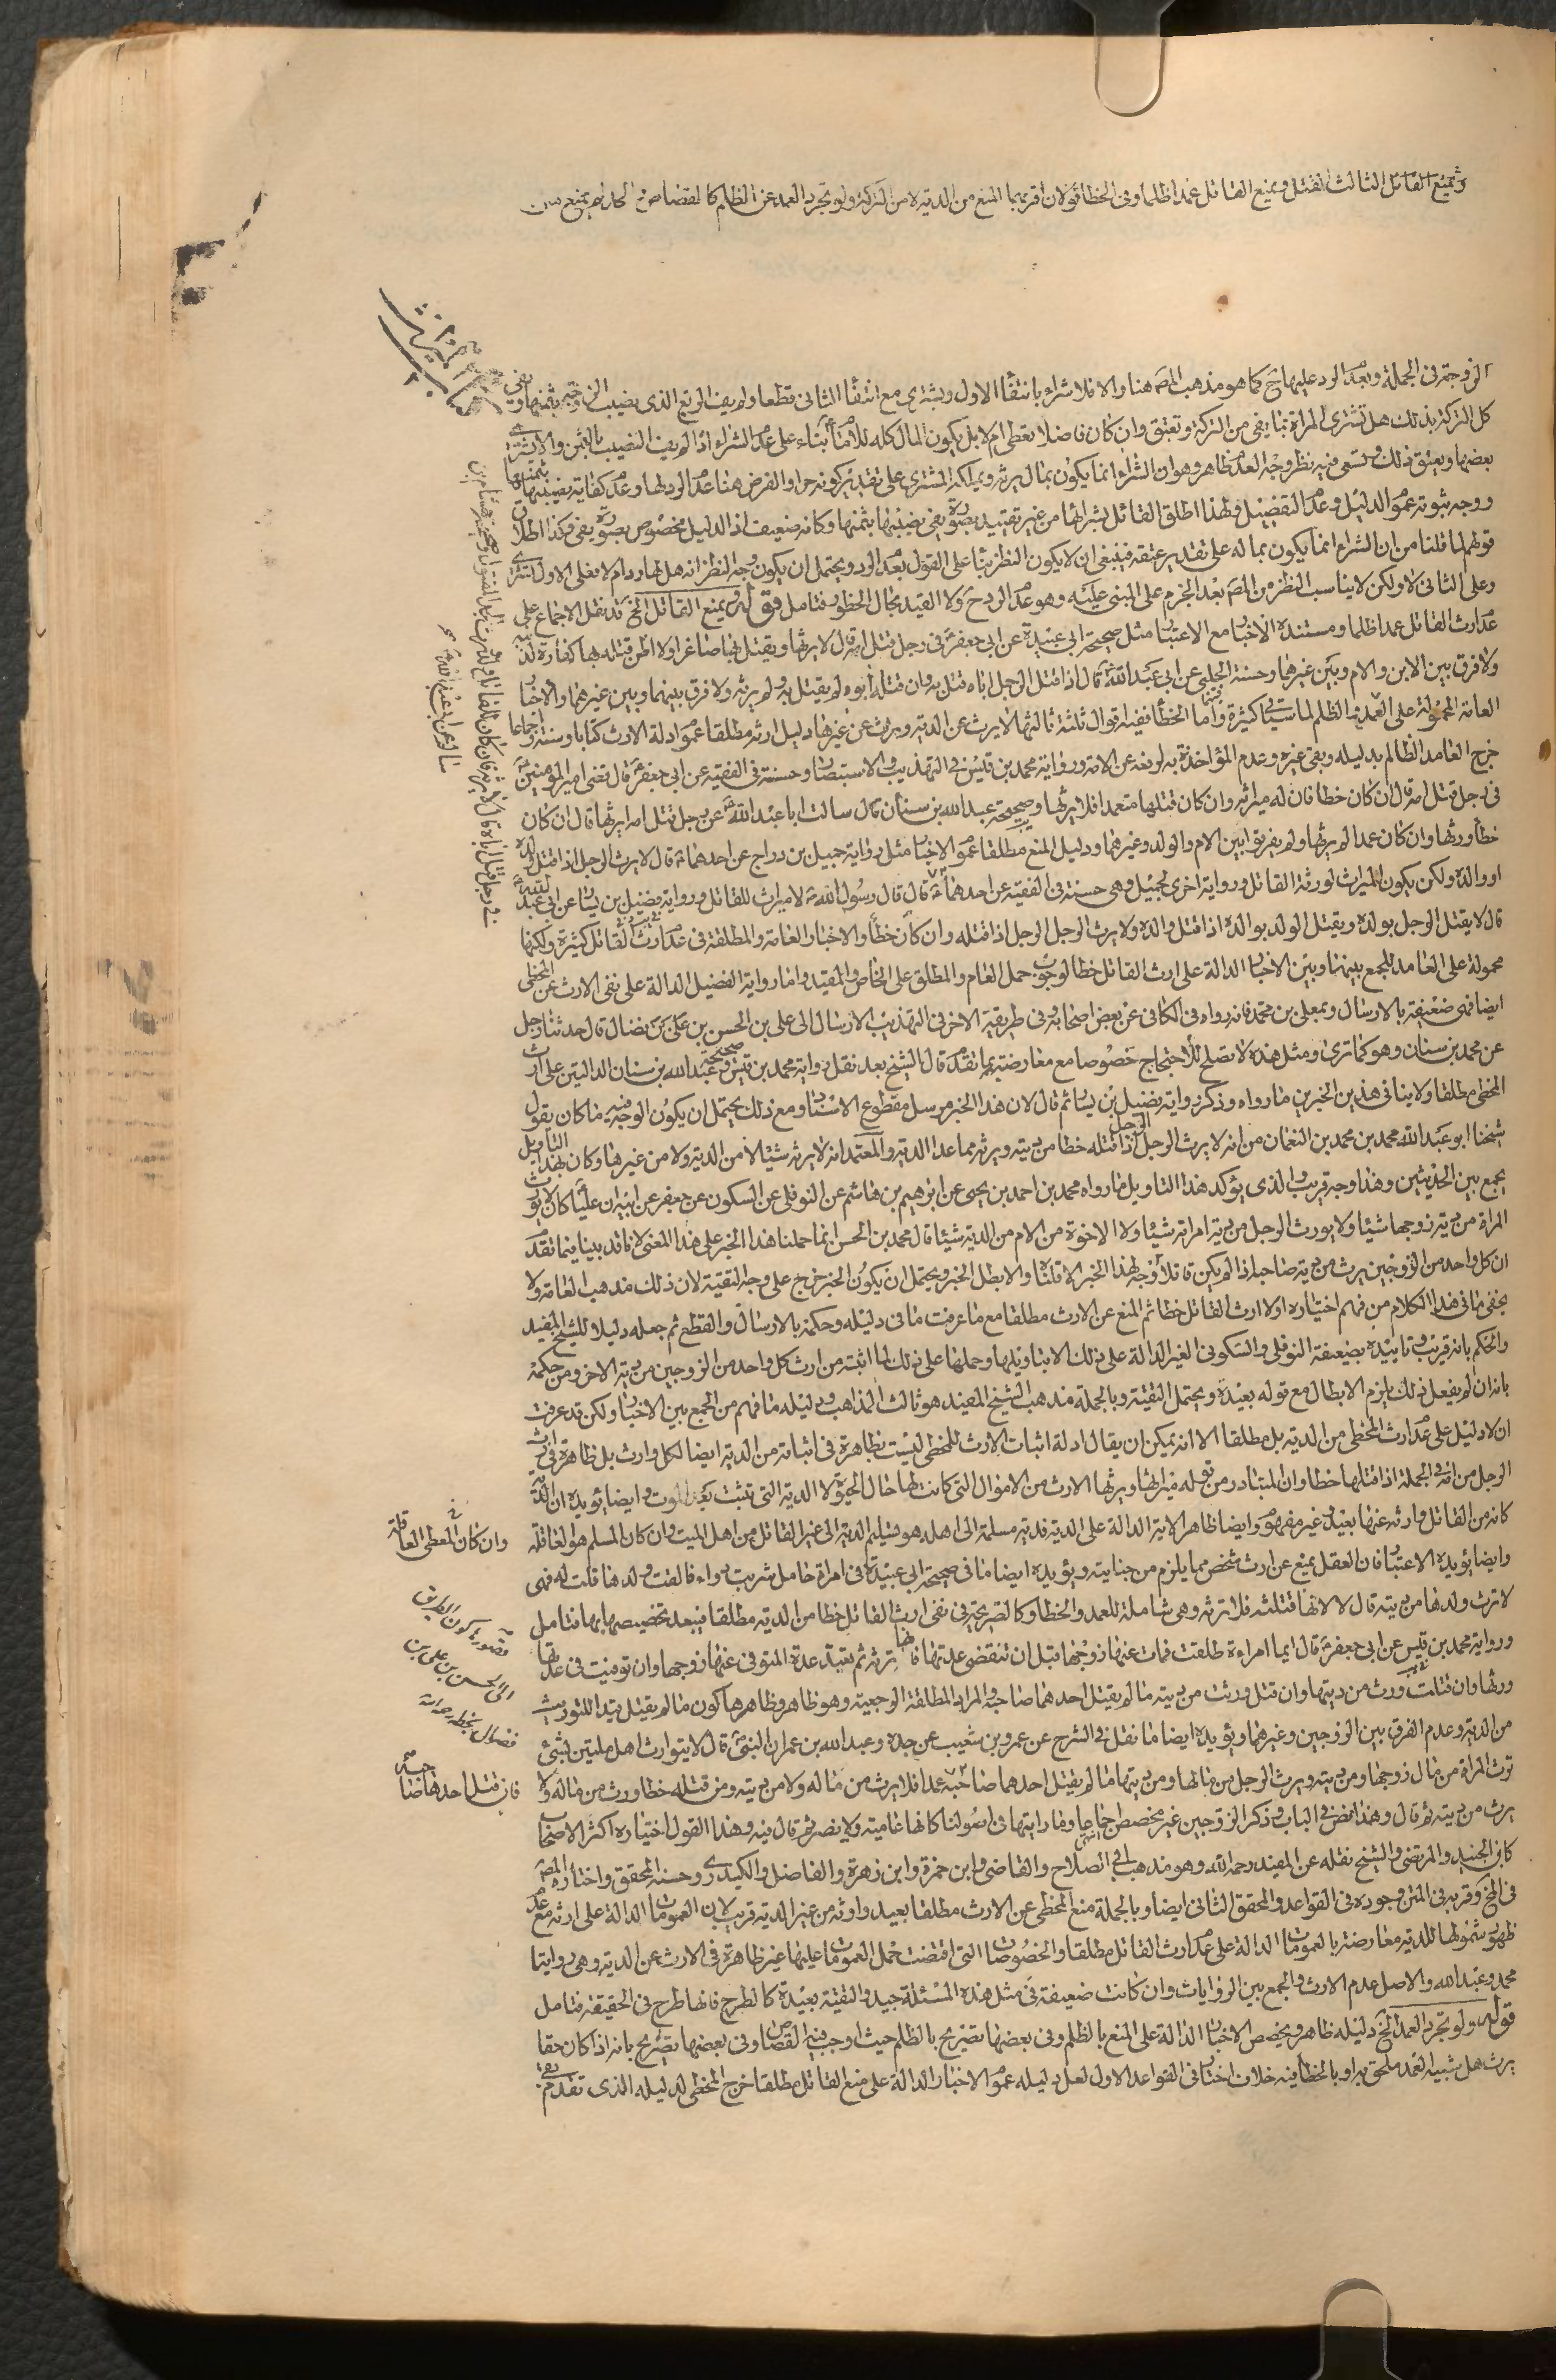 ويمنع القاتل الثالث القتل ويمنع القاتل عمدا ظلما وفى الخطا قولان اقربهما المنع من الدية لا من التركة ولو تجرد العمد عن الظلم كالقصاص
الزوجة فى الجملة وبعد الرد عليها ح كما هو مذهب المص هنا والا فلا شراء بانتفاء الاول ويشترى مع انتفاء الثانى قطعا ولو يف الربع الذى نصيب الزوجة بثمنها وبقى
كل التركة بذلك هل تشترى المراة بما يفى من التركة وتعتق وان كان فاضلا يعطى ام لا بل يكون المال كله للامام بناء على عدم الشراء اذا لم يف النصيب بالثمن
بعضها ويعتق ذلك وتسعى فيه نظر وجه العدم ظاهر وهو ان الشراء انما يكون بمال يرثه ويملكه المشترى على تقدير كونه حرا والفرض هنا عدم الرد لها وعدم كفاية نصيبها بثمنها
ووجه ثبوته عموم الدليل وعدم التفصيل ولهذا اطلق القائل بشرائها من غير تقييد بصورة يفى نصيبها بثمنها وكانه ضعيف اذ الدليل مخصوص بصورة يفى وكذا اطلاق
قولهم لما قلنا من ان الشراء انما يكون بماله على تقدير عتقه فينبغى ان لا يكون النظر بناء على القول بعدم الرد ويحتمل ان يكون وجه النظر انه هل لها رد ام لا فعلى الاول تشترى
وعلى الثانى لا ولكن لا يناسب النظر من المص بعد الجزم على المبنى عليه وهو عدم الرد ح ولا القيد بحال الحظور فتامل قوله ويمنع القاتل الخ قد نقل الاجماع على
عدم ارث القاتل عمدا ظلما ومستنده الاخبار مع الاعتبار مثل صحيحة ابى عبيدة عن ابى جعفر ع فى رجل قتل امه قال لا يرثها ويقتل بها صاغرا ولا اظن قتله بها كفارة لذنبه
ولا فرق بين الابن والام وبين غيرهما وحسنة الحلبى عن ابى عبد الله ع قال اذا قتل الرجل اباه قتل به وان قتله ابوه لم يقتل به ولم يرثه ولا فرق بينهما وبين غيرهما والاخبار
العامة المحمولة على العمد والظلم لما ستسمع كثيرة واما الخطا ففيه اقوال ثلثة ثالثها لا يرث عن الدية ويرث عن غيرها دليل ارثه مطلقا عموم ادلة الارث كتابا وسنة واجماعا
خرج العامد الظالم بدليله وبقى غيره وعدم المؤاخذة به لرفعه عن الامة ورواية محمد بن قيس فى التهذيب والاستبصار وحسنة فى الفقيه عن ابى جعفر ع قال قضى امير المؤمنين ع
فى رجل قتل امه قال ان كان خطا فان له ميراثه وان كان قتلها متعمدا فلا يرثها وصحيحة عبد الله بن سنان قال سالت ابا عبد الله ع عن رجل قتل امه ايرثها قال ان كان
خطأ ورثها وان كان عمدا لم يرثها ولم يفرقوا بين الام والولد وغيرهما ودليل المنع مطلقا عموم الاخبار مثل رواية جميل بن دراج عن احدهما ع قال لا يرث الرجل اذا قتل ولده
او والده ولكن يكون الميراث لورثة القاتل ورواية اخرى لجميل وهى حسنة فى الفقيه عن احدهما ع قال قال رسول الله ص لا ميراث للقاتل ورواية فضيل بن يسار عن ابى عبد الله ع
قال لا يقتل الرجل بولده ويقتل الولد بوالده اذا قتل والده ولا يرث الرجل الرجل اذا قتله وان كان خطأ والاخبار العامة والمطلقة فى عدم ارث القاتل كثيرة ولكنها
محمولة على العامد للجمع بينها وبين الاخبار الدالة على ارث القاتل خطا لوجوب حمل العام والمطلق على الخاص والمقيد واما رواية الفضيل الدالة على نفى الارث عن المخطى
ايضا فهى ضعيفة بالارسال وبمعلى بن محمد فانه رواه فى الكافى عن بعض اصحابه وفى طريقه الاخر فى التهذيب الارسال الى على بن الحسن بن على بن فضال قال حدثنا رجل
عن محمد بن سنان وهو كما ترى ومثل هذه لا تصلح للاحتجاج خصوصا مع معارضته بما تقدم قال الشيخ بعد نقل رواية محمد بن قيس وصحيحة عبد الله بن سنان الدالتين على ارث
المخطى مطلقا ولا ينافى هذين الخبرين ما رواه وذكر رواية فضيل بن يسار ثم قال لان هذا الخبر مرسل مقطوع الاسناد ومع ذلك يحتمل ان يكون الوجه فيه ما كان يقول
شيخنا ابو عبد الله محمد بن محمد بن النعمان من انه لا يرث الرجل الرجل اذا قتله خطا من ديته ويرثه مما عدا الدية والمتعمد انه لا يرثه شيئا لا من الدية ولا من غيرها وكان بهذا التاويل
يجمع بين الحديثين وهذا وجه قريب والذى يؤكد هذا التاويل ما رواه محمد بن احمد بن يحيى عن ابرهيم بن هاشم عن النوفلى عن السكونى عن جعفر عن ابيه ان عليا ع كان لا يورث
المراة من دية زوجها شيئا ولا يورث الرجل من دية امراته شيئا ولا الاخوة من الام من الدية شيئا قال محمد بن الحسن انما حملنا هذا الخبر على هذا المعنى لانا قد بينا فيما تقدم
ان كل واحد من الزوجين يرث من دية صاحبه اذا لم يكن قاتلا فوجه لهذا الخبر الا ما قلناه والا بطل الخبر ويحتمل ان يكون الخبر خرج على وجه التقية لان ذلك مذهب العامة ولا
يخفى ما فى هذا الكلام من فهم اختياره اولا ارث القاتل خطا ثم المنع عن الارث مطلقا مع ما عرفت ما فى دليله وحكمه بالارسال والقطع ثم جعله دليلا للشيخ المفيد
والحكم بانه قريب وتاييده بضعيفة النوفلى والسكونى الغير الدالة على ذلك الا بتاويلها وحملها على ذلك لما اثبته من ارث كل واحد من الزوجين من دية الاخر ومن حكمه
بانه ان لم يفعل ذلك يلزم الابطال مع قوله بعيده ويحتمل التقية وبالجملة مذهب الشيخ المفيد هو ثالث المذاهب ودليله ما فهم من الجمع بين الاخبار ولكن قد عرفت
ان لا دليل على عدم ارث المخطى من الدية بل مطلقا الا انه يمكن ان يقال ادلة اثبات الارث للمخطى ليست بظاهرة فى اثباته من الدية ايضا لكل وارث بل ظاهرة فى ارث
الرجل من امه فى الجملة اذا قتلها خطا وان المتبادر من قوله ميراثها ويرثها الارث من الاموال التى كانت لها حال الحيوة لا الدية التى تثبت بعد الموت وايضا يؤيده ان الدية
كانه من القاتل وارثه عنها بعيد وغير مفهوم وايضا ظاهر الاية الدالة على الدية فدية مسلمة الى اهله هو تسليم الدية الى غير القاتل من اهل الميت وان كان المسلم هو العاقلة
وايضا يؤيده الاعتبار فان العقل يمنع عن ارث شخص مما يلزم من جنايته ويؤيده ايضا ما فى صحيحة ابى عبيدة فى امراة حامل شربت دواء فالقت ولدها قلت له فهى
لا ترث ولدها من ديته قال لا لانها قتلته فلا ترثه وهى شاملة للعمد والخطا وكالصريحة فى نفى ارث القاتل خطا من الدية مطلقا فيبعد تخصيصها بها فتامل
ورواية محمد بن قيس عن ابى جعفر ع قال ايما امراة طلقت فمات عنها زوجها قبل ان تنقضى عدتها فانها ترثه ثم تعتد عدة المتوفى عنها زوجها وان توفيت فى عدتها
ورثها وان قتلت ورث من ديتها وان قتل ورثت من ديته ما لم يقتل احدهما صاحبه والمراد المطلقة الرجعية وهو ظاهر وظاهرها كون ما لم يقتل قيدا للتوريث
من الدية وعدم الفرق بين الزوجين وغيرهما ويؤيده ايضا ما نقل فى الشرح عن عمرو بن شعيب عن جده وعبد الله بن عمران النبى ص قال لا يتوارث اهل ملتين بشئ
ترث المراة من مال زوجها ومن ديته ويرث الرجل من مالها ومن ديتها ما لم يقتل احدهما صاحبه عمدا فلا يرث من ماله ولا من ديته ومن قتله خطا ورث من ماله ولا
يرث من ديته ثم قال وهذا نص فى الباب وذكر الزوجين غير مخصص اجماعا وما رايتها فى اصولنا كانها عامية ولا يضر ثم قال فيه وهذا القول اختياره اكثر الاصحاب
كابن الجنيد والمرتضى والشيخ نقله عن المفيد رحمه الله وهو مذهب ابى الصلاح والقاضى وابن حمزة وابن زهرة والفاضل والكيدرى وحسنه المحقق واختاره المص
فى المخ وقربه فى المتن وجوده فى القواعد والمحقق الثانى ايضا وبالجملة منع المخطى عن الارث مطلقا بعيد وارثه من غير الدية قريب لان العمومات الدالة على ارثه مع عدم
ظهور شمولها للدية معارضة بالعمومات الدالة على عدم ارث القاتل مطلقا والخصوصات التى اقتضت حمل العمومات عليها غير ظاهرة فى الارث عن الدية وهى روايتا
محمد وعبد الله والاصل عدم الارث والجمع بين الروايات وان كانت ضعيفة فى مثل هذه المسئلة جيد والتقية بعيدة كالطرح فانها طرح فى الحقيقة فتامل
قوله ولو تجرد العمد الخ دليله ظاهر ويخصص الاخبار الدالة على المنع بالظلم وفى بعضها تصريح بالظلم حيث اوجب فيه القصاص وفى بعضها تصريح بانه اذا كان حقا
يرث هل شبيه العمد ملحق به او بالخطأ فيه خلاف اختار فى القواعد الاول لعل دليله عموم الاخبار الدالة على منع القاتل مطلقا خرج المخطى لدليله الذى تقدم بقى
وان كان المعطى العاقلة
الى الحسن بن على بن
فضال بخطه رحمه الله
فان قتل احدهما صاحبه